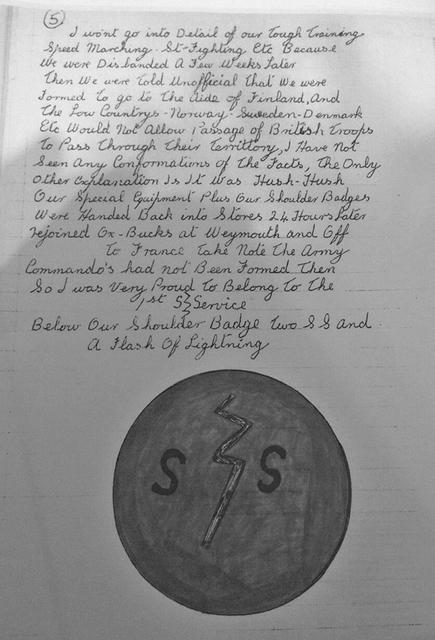 5
I won't go into Detail of our Tough Training
Speed Marching - St-Fighting Etc Because
We were Disbanded A Few Weeks Later
Then We were Told Unofficial that We were
Formed To go to The Aide of Finland, And
The Low Countrys - Norway - Sweden - Denmark
Etc Would Not Allow Passage of British Troops
To Pass Through Their Territtory, I Have Not
Seen Any Conformations Of The Facts, The Only
Other Explanation Is It Was Hush-Hush
Our Special Equipment Plus Our Shoulder Badges
Were Handed Back into Stores 24 Hours Later
rejoined Ox-Bucks at Weymouth and Off
To France Take Note The Army
Commando's had not Been Formed Then
So I was Very Proud To Belong To The
1st SS Service
Below Our Shoulder Badge Two S S And
A Flash Of Lightning
S S